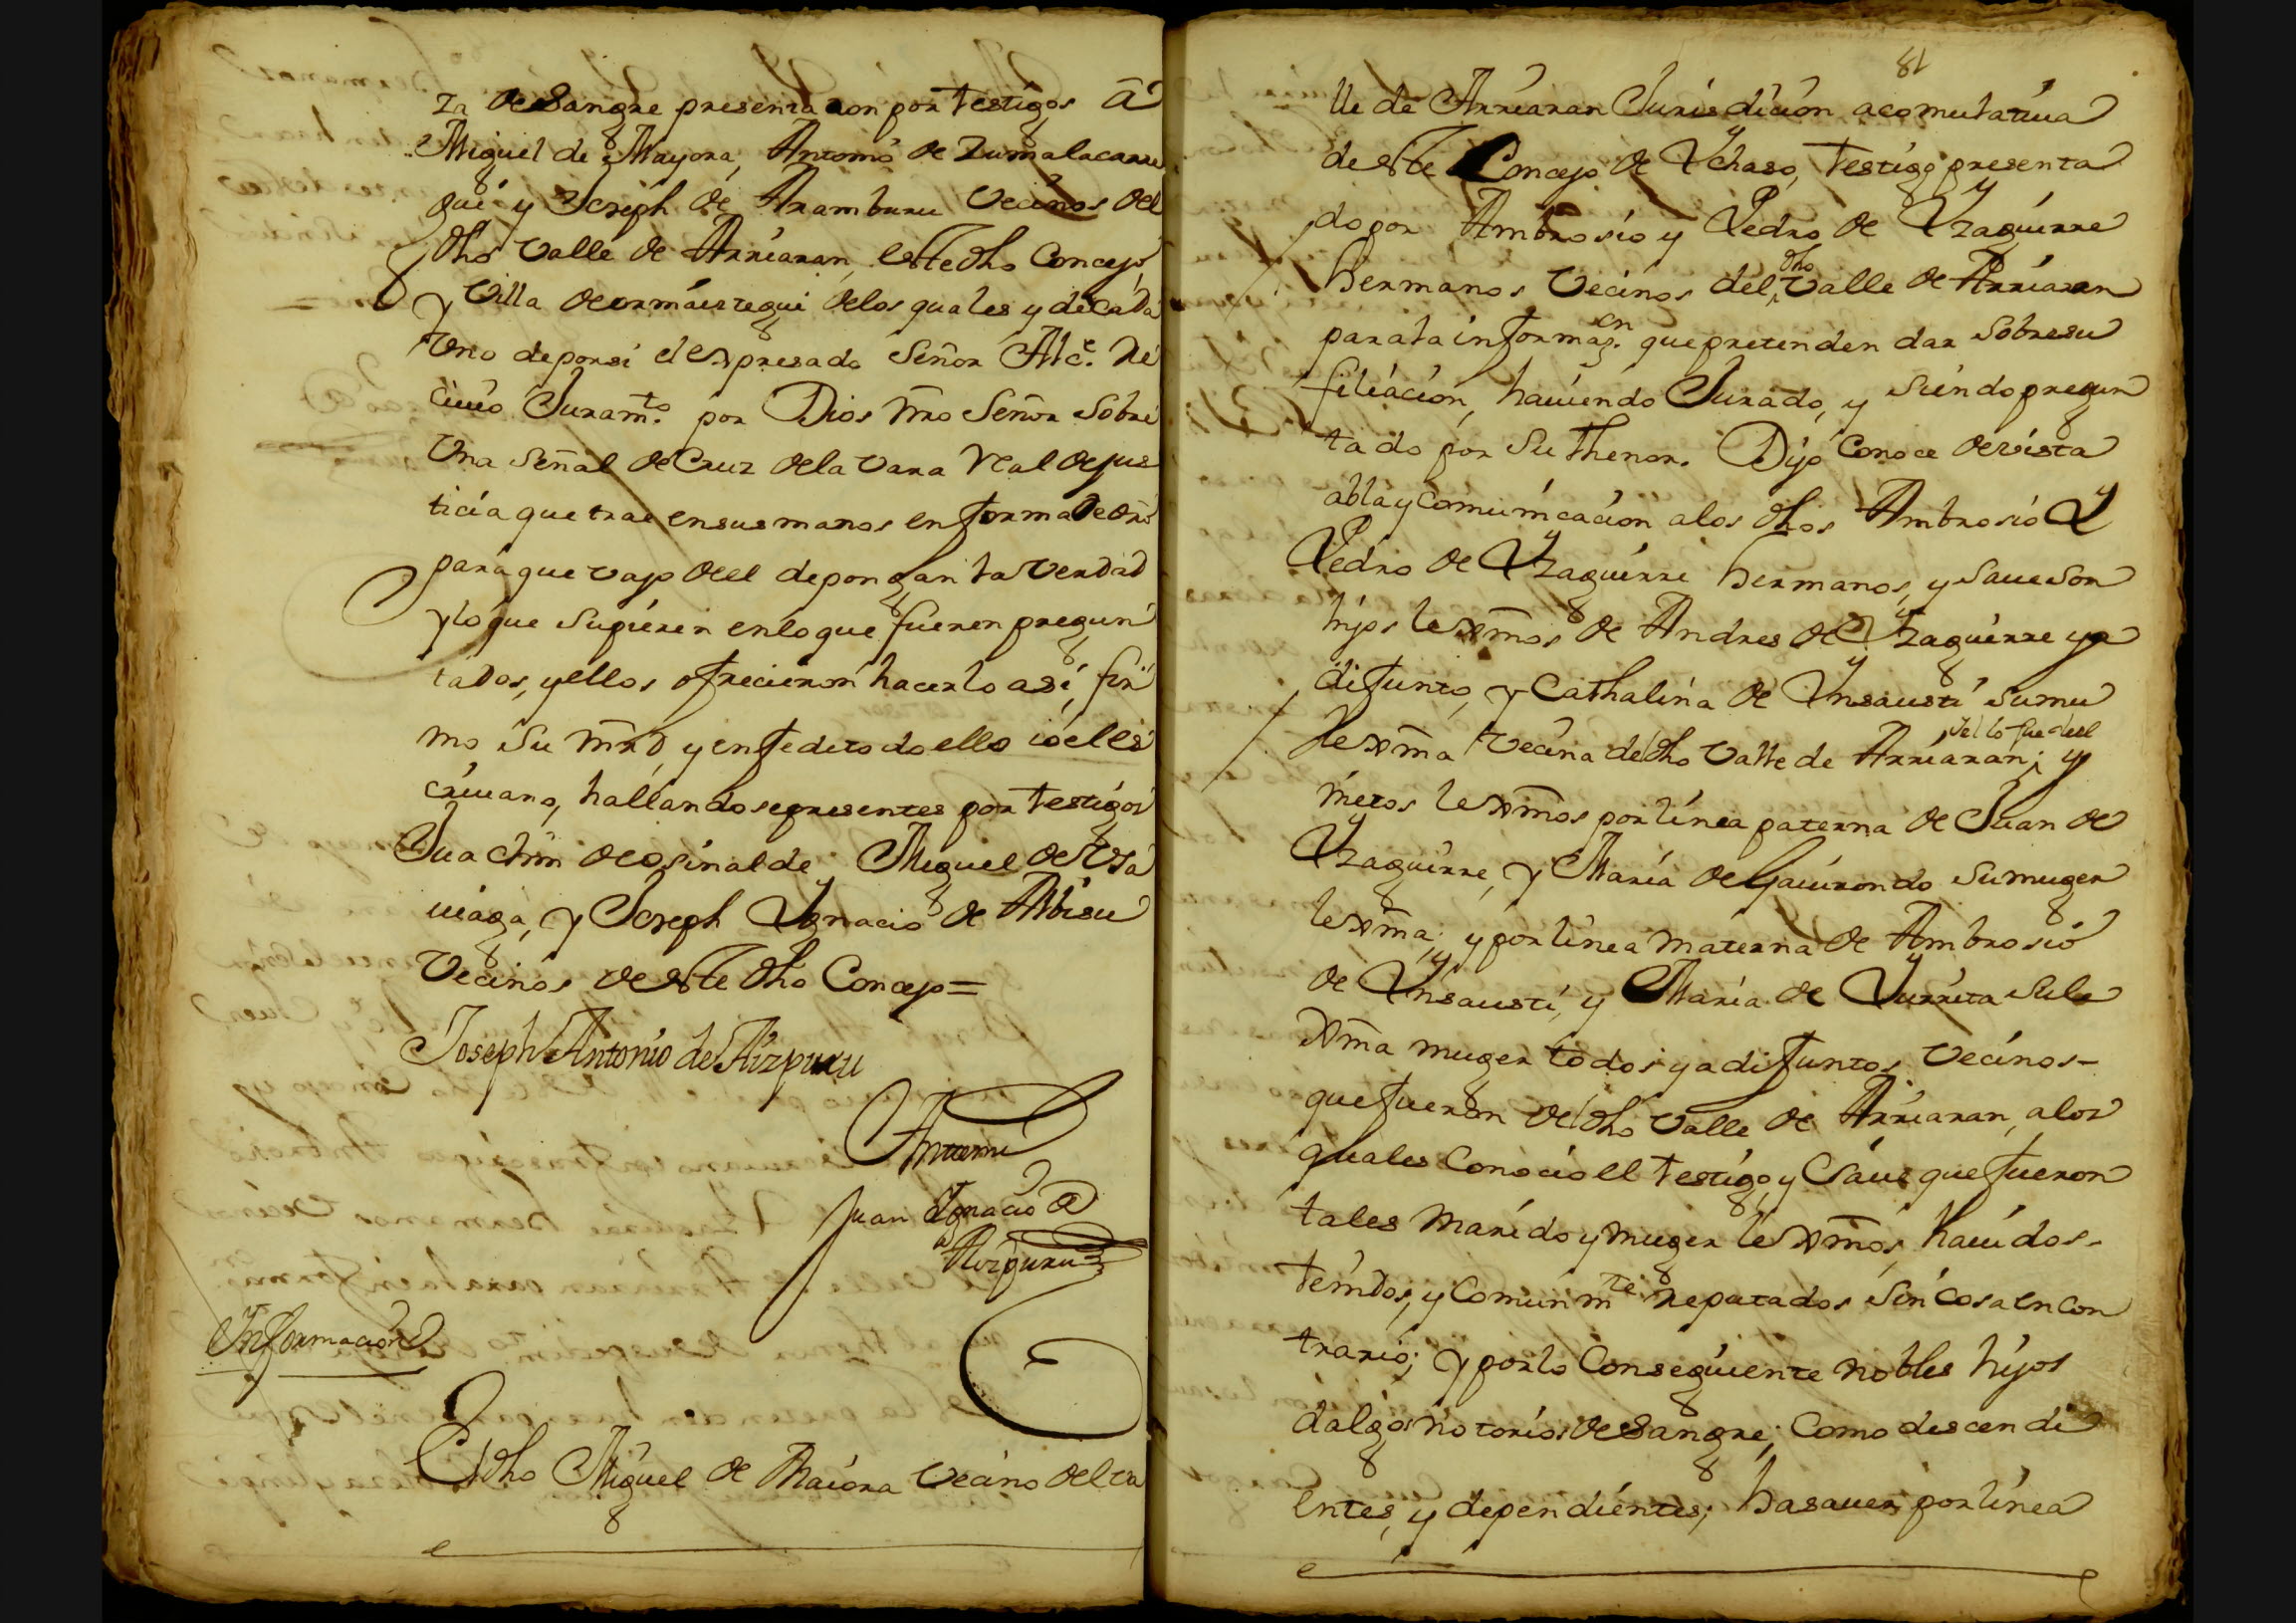 za de Sangre presentaron por testigos â
Miguel de Mayora, Antonio de Zumalacarre
gui y Joseph de Aramburu Vecinos del
dho Valle de Arriaran, este dho Concejo
y Villa de ormaistegui de los quales y de cada
Uno de por si el expresado Señor Alce. Re
civio Juramto. por Dios nro Señor sobre
Una señal de Cruz de la Vara Real de jus
ticia que trae en sus manos en forma de dro
para que vajo de el depongan la Verdad
y lo que supieren en lo que fueren pregun
tados, y ellos ofrecieron hacerlo asi, fir
mo Su mrd, y en fe de todo ello io el es
crivano, hallandose presentes por testigos
Juachin de osinalde Miguel de
viaga, y Joseph Ygnacio de Albisu
Vecinos de este dho Concejo =
Joseph Antonio de Aizpuru
Antemi
Juan Ygnacio
de Aizpuru
Informacion
El dho Miguel de Maiora Vecino del va
81
lle de Arriaran Jurisdicion acomulativa
de este Concejo de Ychaso, testigo presenta
do por Ambrosio y Pedro de Yzaguirre
hermanos Vecinos del dho Valle de Arriaran
para la informazn. que pretenden dar sobre su
filiacion, haviendo Jurado, y siendo pregun
tado por su thenor. Dijo conoce de vista
abla y comunicacion a los dhos Ambrosio Y
Pedro de Yzaguirre hermanos, y save son
hijos lexmos de Andres de Yzaguirre ya
difunto, y Cathalina de Ynsausti su mu
lexma Vecina del dho Valle de Arriaran; y
el lo fue de el
nietos lexmos por linea paterna de Juan de
Yzaguirre, y Maria de Gaviirondo su muger
lexma; y por linea materna de Ambrosio
de Ynsausti, y Maria de Yurrita su le
xma muger todos ya difuntos Vecinos
que fueron del dho Valle de Arriaran, a los
quales conocio el testigo, y save que fueron
tales marido y muger lexmos, havidos
tenidos, y comunmte reputados sin cosa en con
trario; y por lo consequiente nobles hijos
dalgo notorios de Sangre; como descendi
entes, y dependientes; ha saver por linea